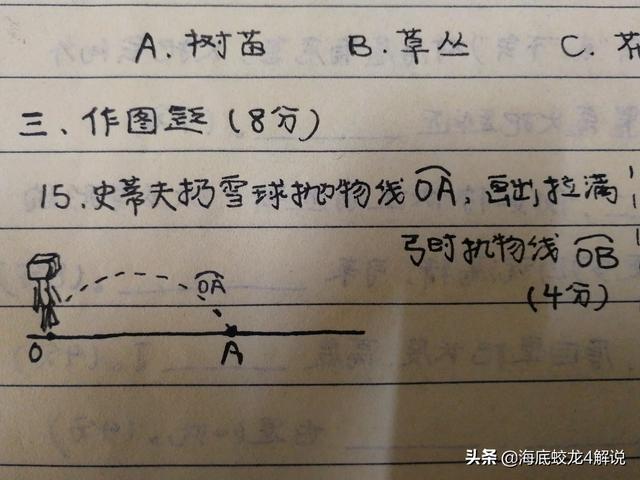 A.树苗 B.草丛 C.
三、作图题(8分)
15.史蒂夫扔雪球抛物线OA,画出拉满
弓时抛物线OB
(4分)
OA
O A
头条 @海底蛟龙4解说